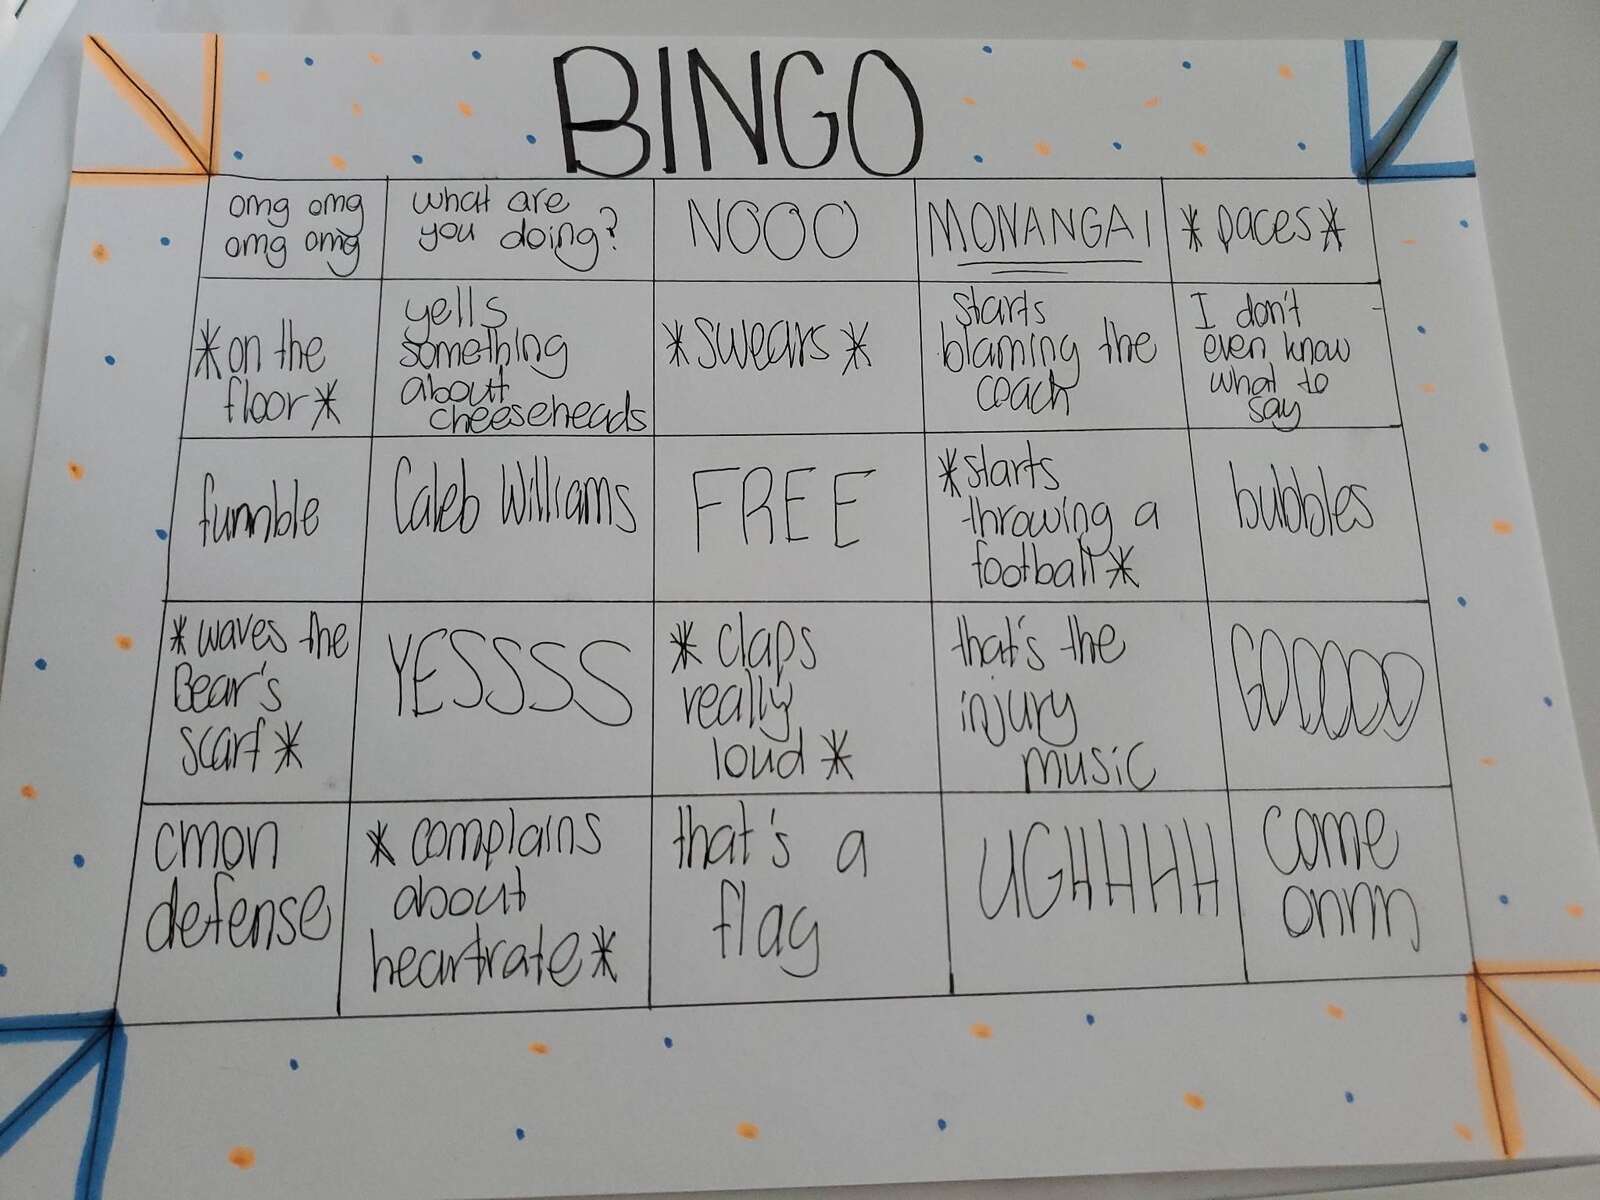 BINGO
omg omg
omg omg
what are
you doing?
NOOO
MONANGAI
*paces*
*on the
floor*
yells
something
about
cheeseheads
*swears*
starts
blaming the
coach
I don't
even know
what to
say
fumble
Caleb Williams
FREE
*starts
throwing a
football*
bubbles
*waves the
Bear's
scarf*
YESSSS
*claps
really
loud*
that's the
injury
music
GOOOOO
cmon
defense
*complains
about
heartrate*
that's a
flag
UGHHHH
come
onnn